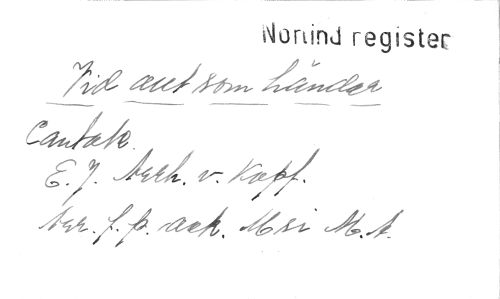 Norlind register
Vid allt som händer
Cantate.
E. J. Verh. v. Kopf.
Arr. f. p. ack. Msi M.A.